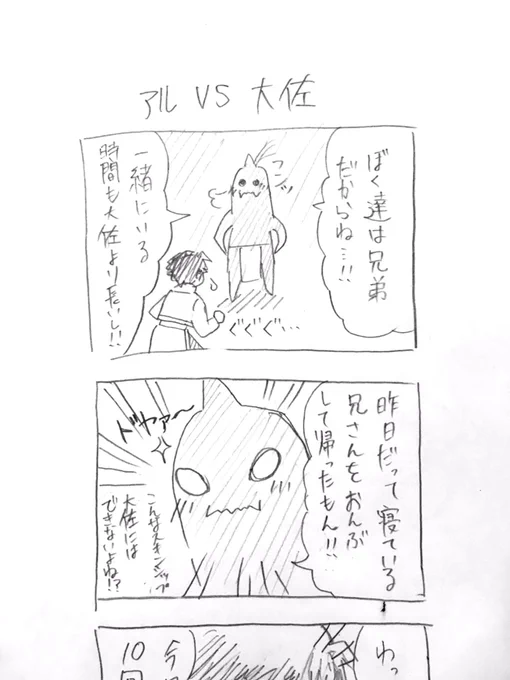 アル VS 大佐
ぼく達は兄弟
だからね…!!
フンッ
一緒にいる
時間も大佐より長いし!!
ぐぐぐ…
昨日だって寝ている
兄さんをおんぶ
して帰ったもん!!
ドヤァ〜
こんなスキンシップ
大佐には
できないよね!?
わっ
10